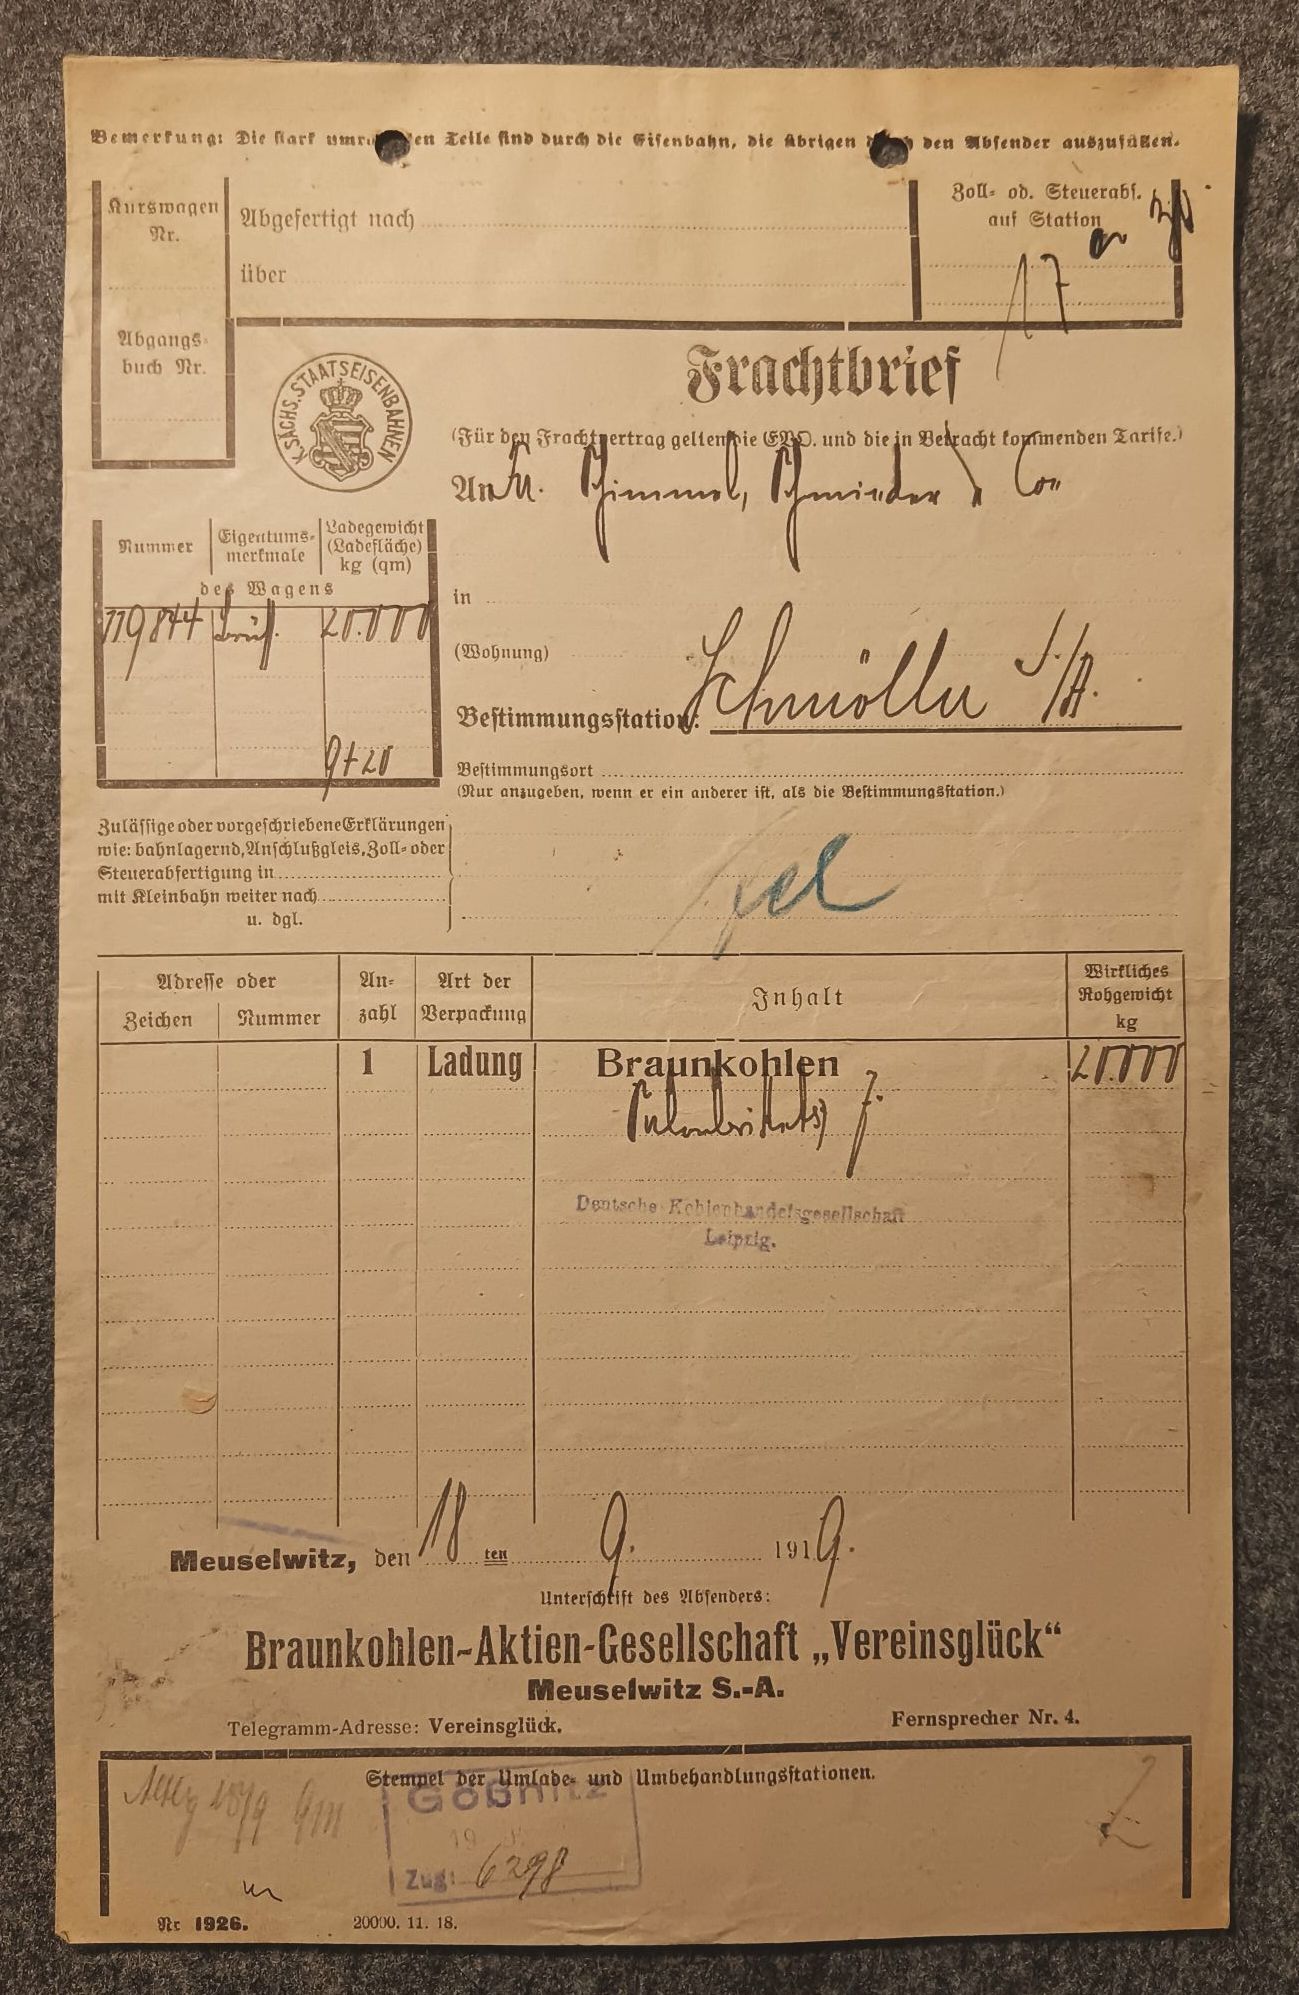 Bemerkung: Die stark umr en Teile sind durch die Eisenbahn, die übrigen den Absender auszufüllen.
Kurswagen
Nr.
Abgefertigt nach
über
Zoll- od. Steuerabf.
auf Station
17
Abgangs-
buch Nr.
K. SÄCHS. STAATSEISENBAHNEN
Frachtbrief
(Für den Frachtvertrag gelten die EVO. und die in Betracht kommenden Tarife.)
An Schimmel, Schmieder & Co
Nummer
Eigentums-
merkmale
Ladegewicht
(Ladefläche)
kg (qm)
des Wagens
119844 20.000
9720
in
(Wohnung)
Bestimmungsstation: Schmölln S./A.
Bestimmungsort
(Nur anzugeben, wenn er ein anderer ist, als die Bestimmungsstation.)
Zulässige oder vorgeschriebene Erklärungen
wie: bahnlagernd, Anschlußgleis, Zoll- oder
Steuerabfertigung in
mit Kleinbahn weiter nach
u. dgl.
Adresse oder
Zeichen
Nummer
An-
zahl
Art der
Verpackung
Inhalt
Wirkliches
Rohgewicht
kg
1 Ladung Braunkohlen 20.000
Deutsche Kohlenhandelsgesellschaft
Leipzig.
Meuselwitz, den 18 ten 9. 1919.
Unterschrift des Absenders:
Braunkohlen-Aktien-Gesellschaft „Vereinsglück“
Meuselwitz S.-A.
Telegramm-Adresse: Vereinsglück.
Fernsprecher Nr. 4.
Stempel der Umlade- und Umbehandlungsstationen.
18/9
Gößnitz
Zug: 6298
Nr 1926.
20000. 11. 18.